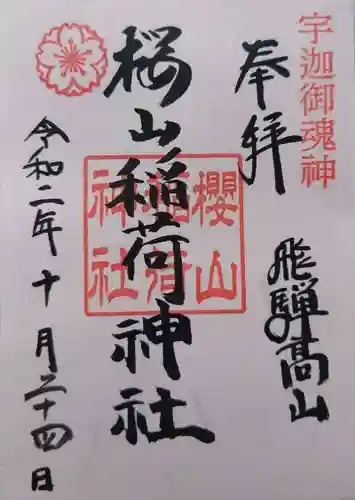 宇迦御魂神
奉拝
飛騨高山
桜山稲荷神社
櫻山稲荷神社
令和二年十月二十四日